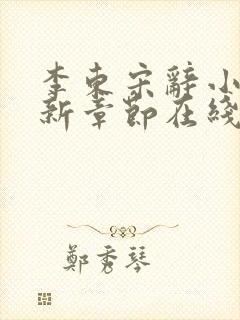 李东宋辭小
新章節在綫
鄭秀琴